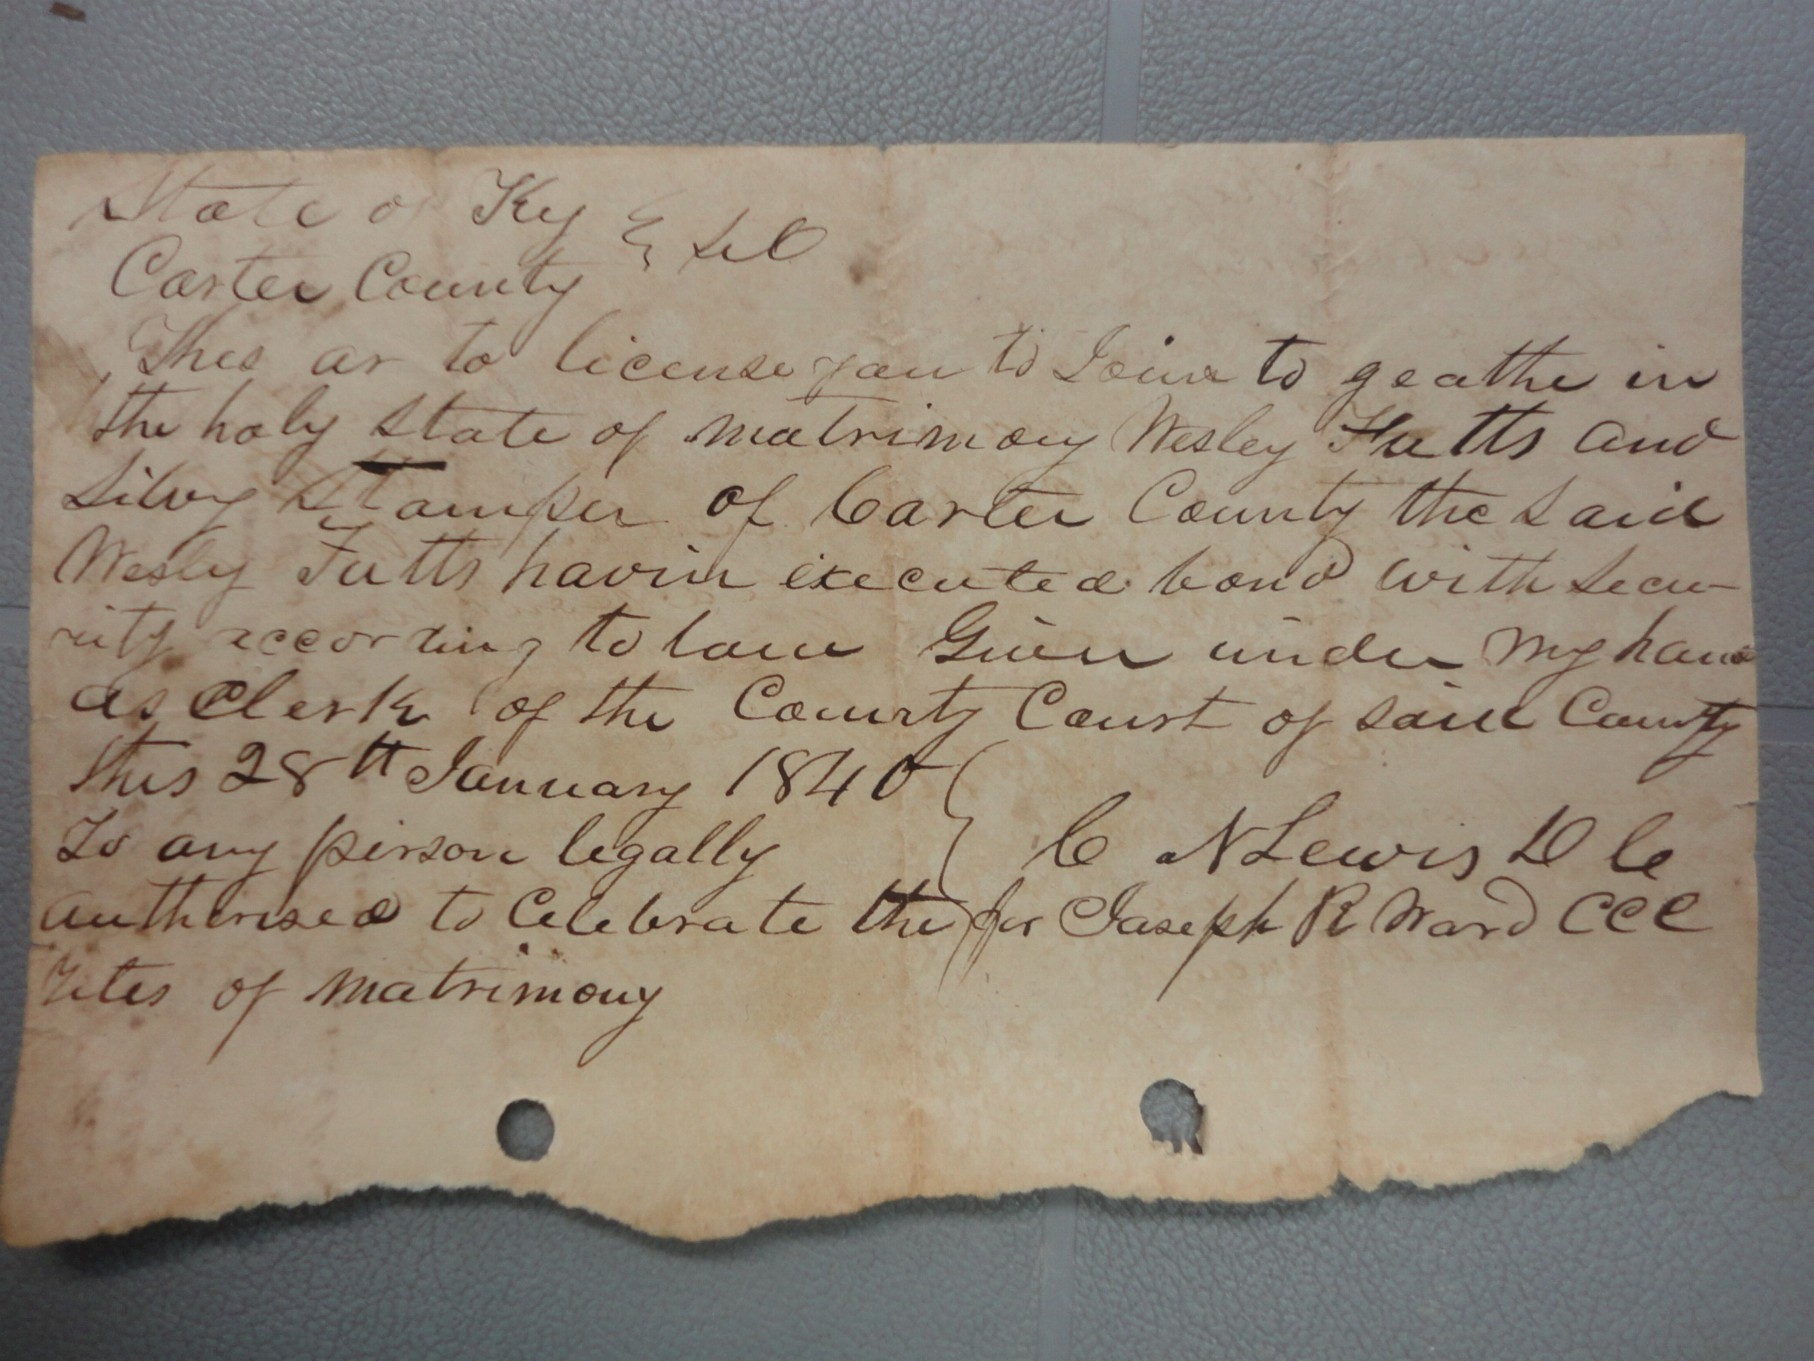 State of Ky } Sct
Carter County
This ar to license you to Join to geathe in
the holy State of matrimony Wesley Futts and
Silvy Stamper of Carter County the Said
Wesley Futts havin executed bond with Secu-
rity according to law Givin under my hand
as Clerk of the County Court of said County
this 28th January 1840
To any pirson legally } C N Lewis D C
authorised to Celebrate the for Joseph R Ward CCC
rites of matrimony